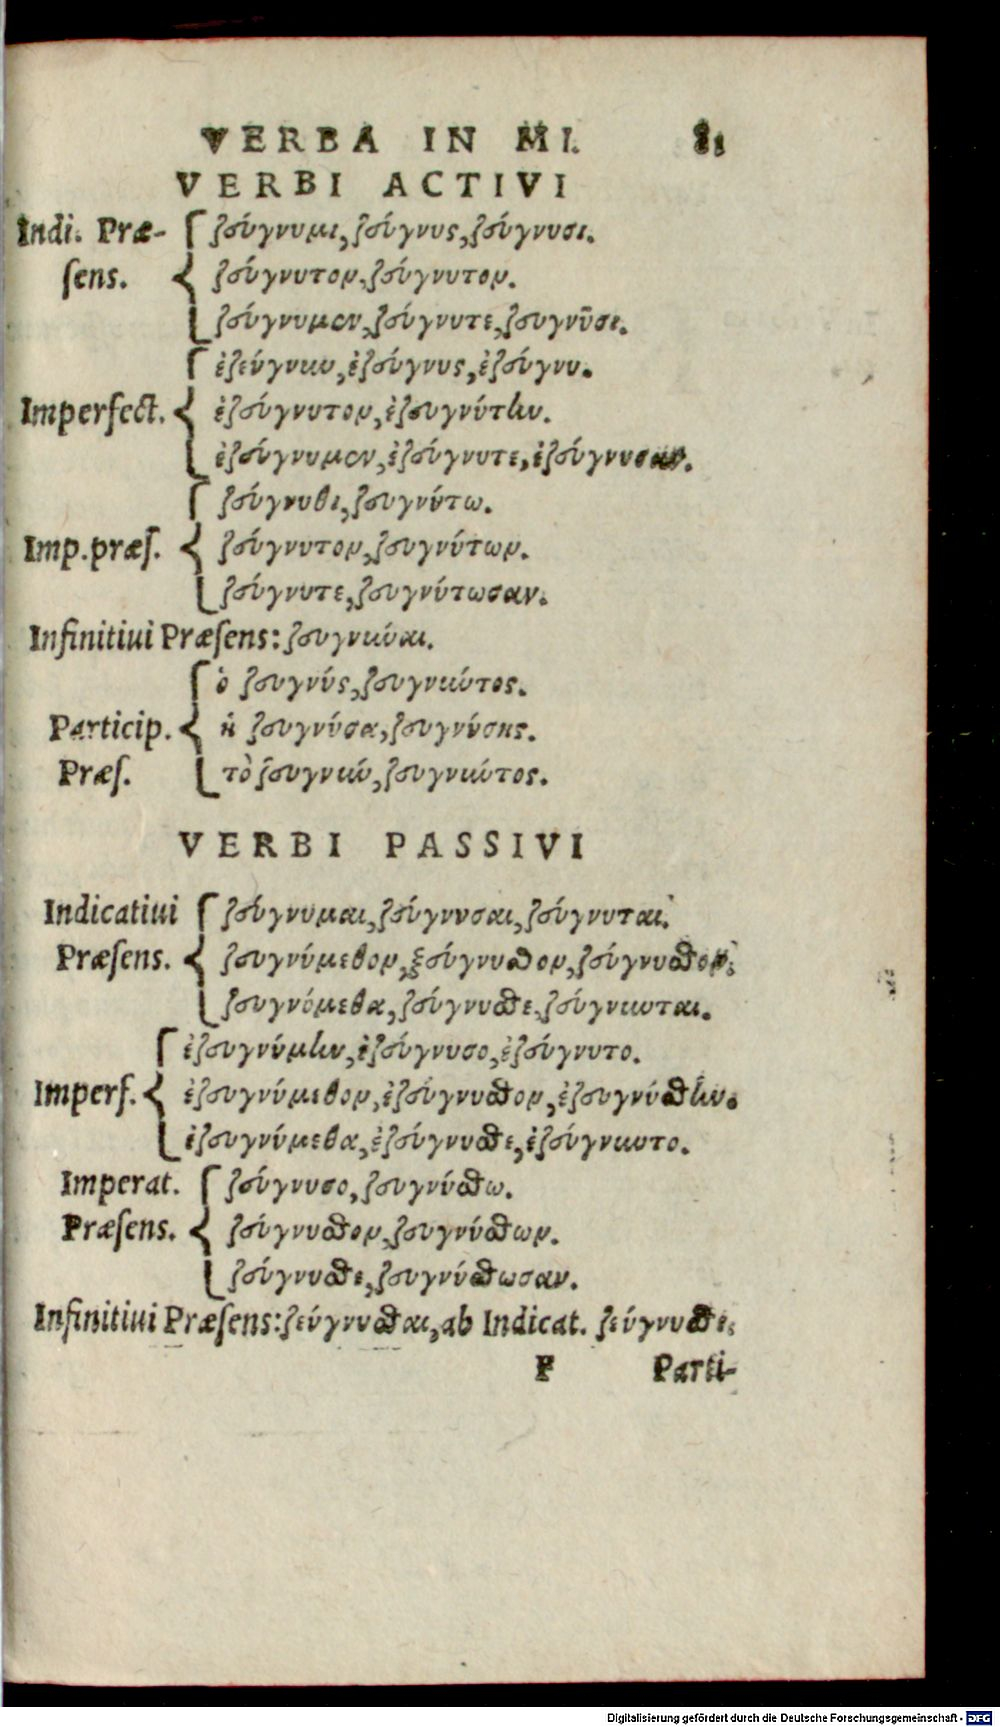 VERBA IN MI. 81
VERBI ACTIVI
Indi. Præ- ζεύγνυμι, ζεύγνυς, ζεύγνυσι.
ſens. ζεύγνυτον, ζεύγνυτον.
ζεύγνυμεν, ζεύγνυτε, ζευγνῦσι.
ἐζεύγνυν, ἐζεύγνυς, ἐζεύγνυ.
Imperfect. ἐζεύγνυτον, ἐζευγνύτην.
ἐζεύγνυμεν, ἐζεύγνυτε, ἐζεύγνυσαν.
ζεύγνυθι, ζευγνύτω.
Imp. præſ. ζεύγνυτον, ζευγνύτων.
ζεύγνυτε, ζευγνύτωσαν.
Infinitiui Præſens: ζευγνύναι.
ὁ ζευγνύς, ζευγνύντος.
Particip. ἡ ζευγνύσα, ζευγνύσης.
Præſ. τὸ ζευγνύν, ζευγνύντος.
VERBI PASSIVI
Indicatiui ζεύγνυμαι, ζεύγνυσαι, ζεύγνυται.
Præſens. ζευγνύμεθον, ξεύγνυσθον, ζεύγνυσθον.
ζευγνόμεθα, ζεύγνυσθε, ζεύγνυνται.
ἐζευγνύμην, ἐζεύγνυσο, ἐζεύγνυτο.
Imperf. ἐζευγνύμεθον, ἐζεύγνυσθον, ἐζευγνύσθην.
ἐζευγνύμεθα, ἐζεύγνυσθε, ἐζεύγνυντο.
Imperat. ζεύγνυσο, ζευγνύσθω.
Præſens. ζεύγνυσθον, ζευγνύσθων.
ζεύγνυσθε, ζευγνύσθωσαν.
Infinitiui Præſens: ζεύγνυσθαι, ab Indicat. ζεύγνυσθε,
F Parti-
Digitalisierung gefördert durch die Deutsche Forschungsgemeinschaft - DFG